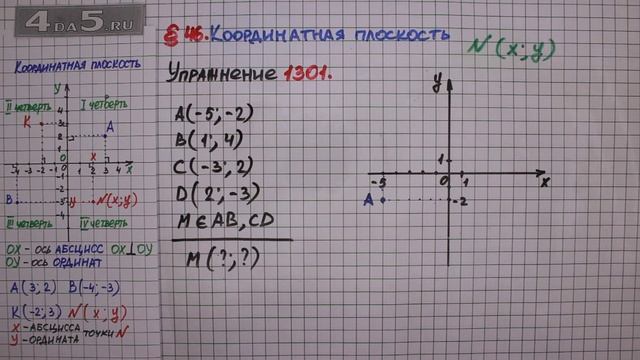 4DA5.RU
§ 46. КООРДИНАТНАЯ ПЛОСКОСТЬ
N(x; y)
УПРАЖНЕНИЕ 1301.
A(-5; -2)
B(1; 4)
C(-3; 2)
D(2; -3)
M ∈ AB, CD
M(?; ?)
y
1
-5
0
1
x
A
-2
КООРДИНАТНАЯ ПЛОСКОСТЬ
y
II ЧЕТВЕРТЬ
I ЧЕТВЕРТЬ
4
K
3
A
2
1
0
x
-4 -3 -2 -1
1 2 3 4
x
-1
-2
B
-3
y
N(x; y)
III ЧЕТВЕРТЬ
IV ЧЕТВЕРТЬ
OX - ОСЬ АБСЦИСС OX⊥OY
OY - ОСЬ ОРДИНАТ
A(3; 2) B(-4; -3)
K(-2; 3) N(x; y)
X - АБСЦИССА
Y - ОРДИНАТА
ТОЧКИ N